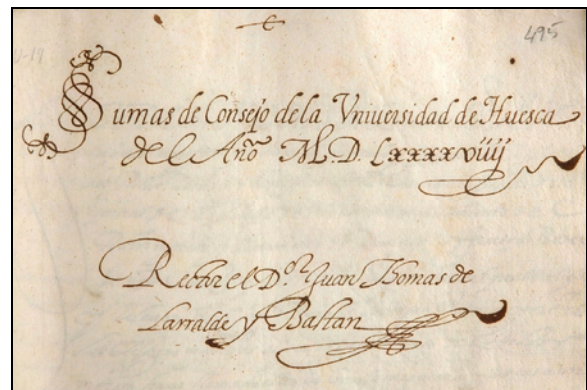 495
Sumas de Consejo de la Vniuersidad de Huesca
del Año M.D. Lxxxxviiij
Rector el D.or Juan Thomas de
Larralde y Bastan